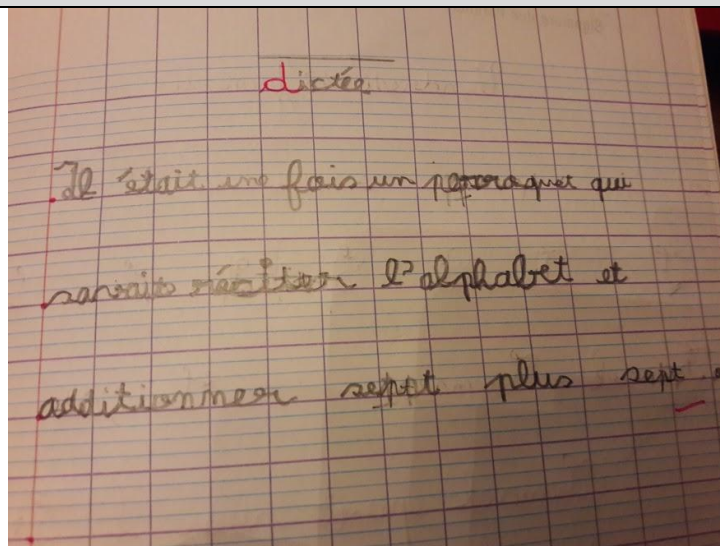 dictée
Il était une fois un perroquet qui
savait réciter l'alphabet et
additionner sept plus sept.